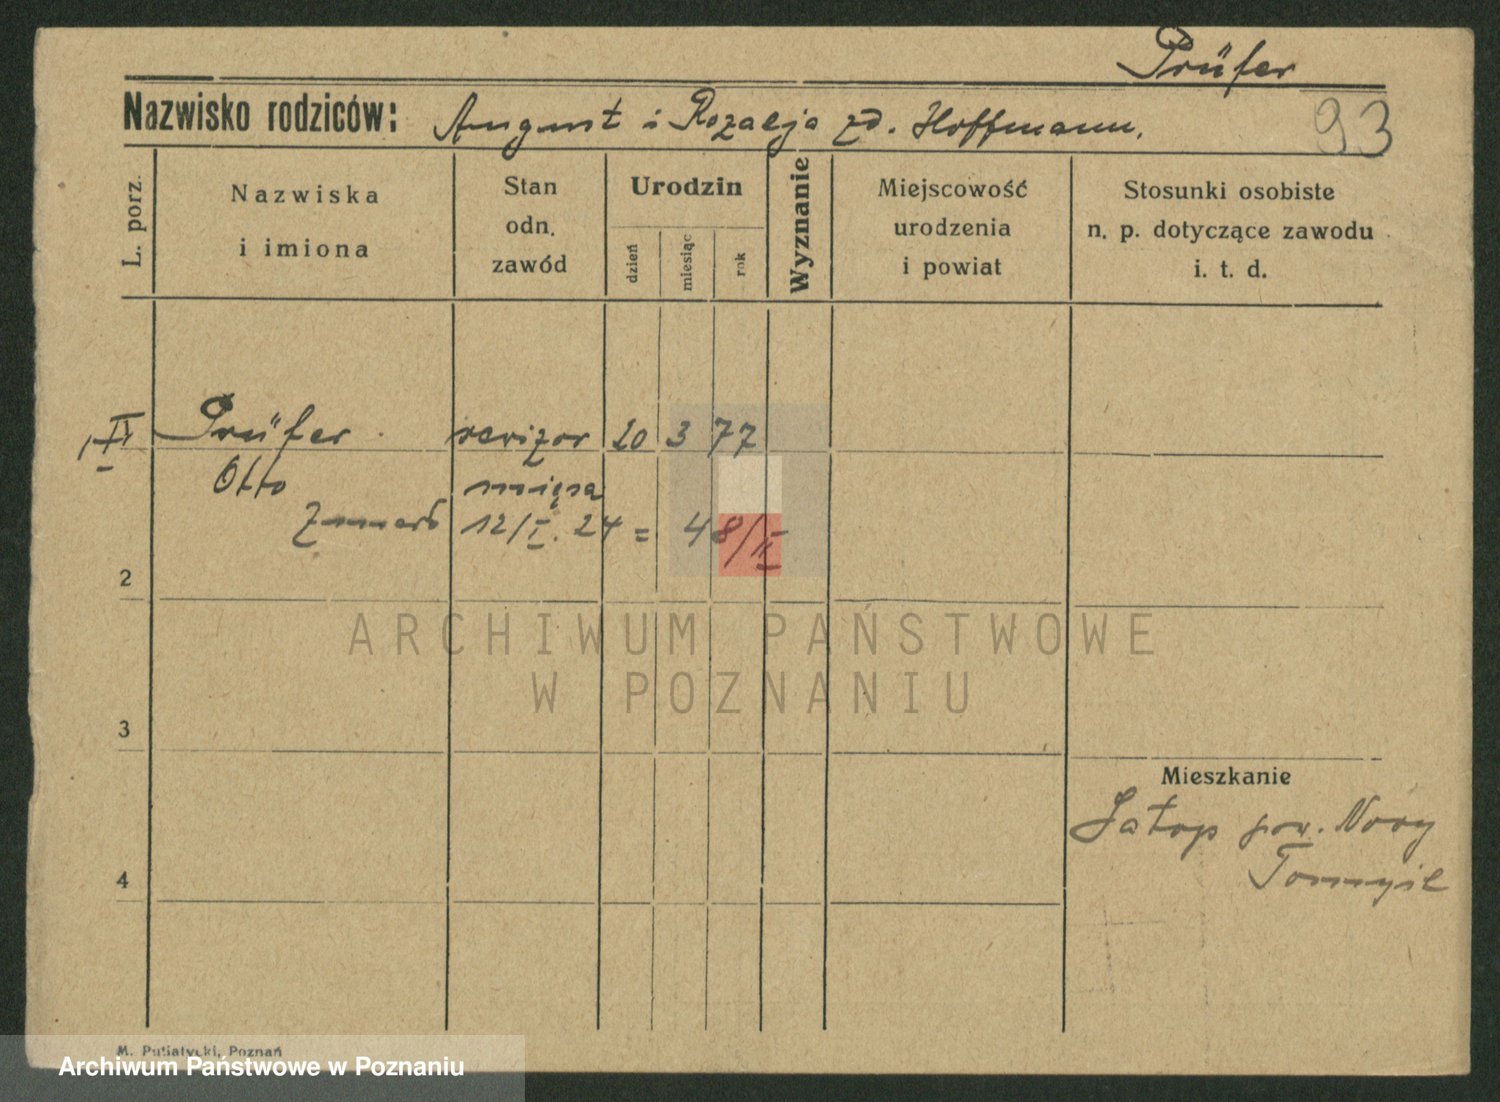 Prüfer
Nazwisko rodziców: August i Rozalja zd. Hoffmann.
93
L. porz.
Nazwiska
i imiona
Stan
odn.
zawód
Urodzin
dzień
miesiąc
rok
Wyznanie
Miejscowość
urodzenia
i powiat
Stosunki osobiste
n. p. dotyczące zawodu
i. t. d.
Prüfer rewizor 20 3 77
Otto mięsa
Zmarł 12/I. 24 = 48/II
2
ARCHIWUM PAŃSTWOWE
W POZNANIU
3
Mieszkanie
Sątop pow. Nowy
Tomyśl
4
M. Putiatycki, Poznań
Archiwum Państwowe w Poznaniu